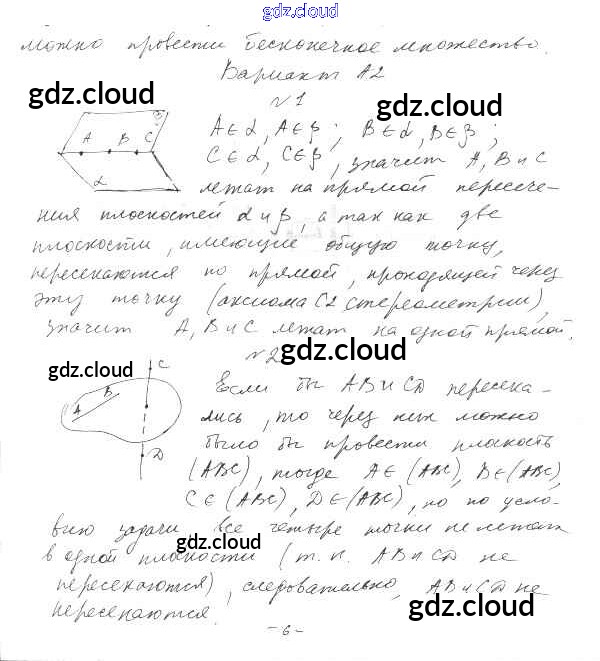 gdz.cloud
можно провести бесконечное множество.
Вариант А2
gdz.cloud
№1
gdz.cloud
β
A B C
α
A∈α, A∈β; B∈α, B∈β;
C∈α, C∈β, значит A, B и C
лежат на прямой пересече-
ния плоскостей α и β, а так как две
плоскости, имеющие общую точку,
gdz.cloud
пересекаются по прямой, проходящей через
эту точку (аксиома С2 стереометрии),
значит A, B и C лежат на одной прямой.
№2
gdz.cloud
gdz.cloud
C
A B
D
Если бы AB и CD пересека-
лись, то через них можно
было бы провести плоскость
(ABC), тогда A∈(ABC), B∈(ABC),
gdz.cloud
C∈(ABC), D∈(ABC), но по усло-
вию задачи, все четыре точки не лежат
gdz.cloud
в одной плоскости (т.к. AB и CD не
пересекаются), следовательно, AB и CD не
gdz.cloud
пересекаются.
gdz.cloud
-6-
gdz.cloud